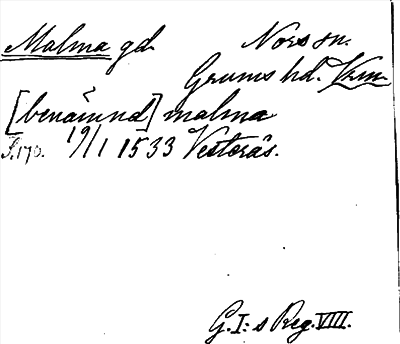 Malma gd. Nors sn.
Grums hd. Vrm.
[benämnd] malma
S. 170. 19/1 1533 Vesterås.
G. I:s Reg. VIII.